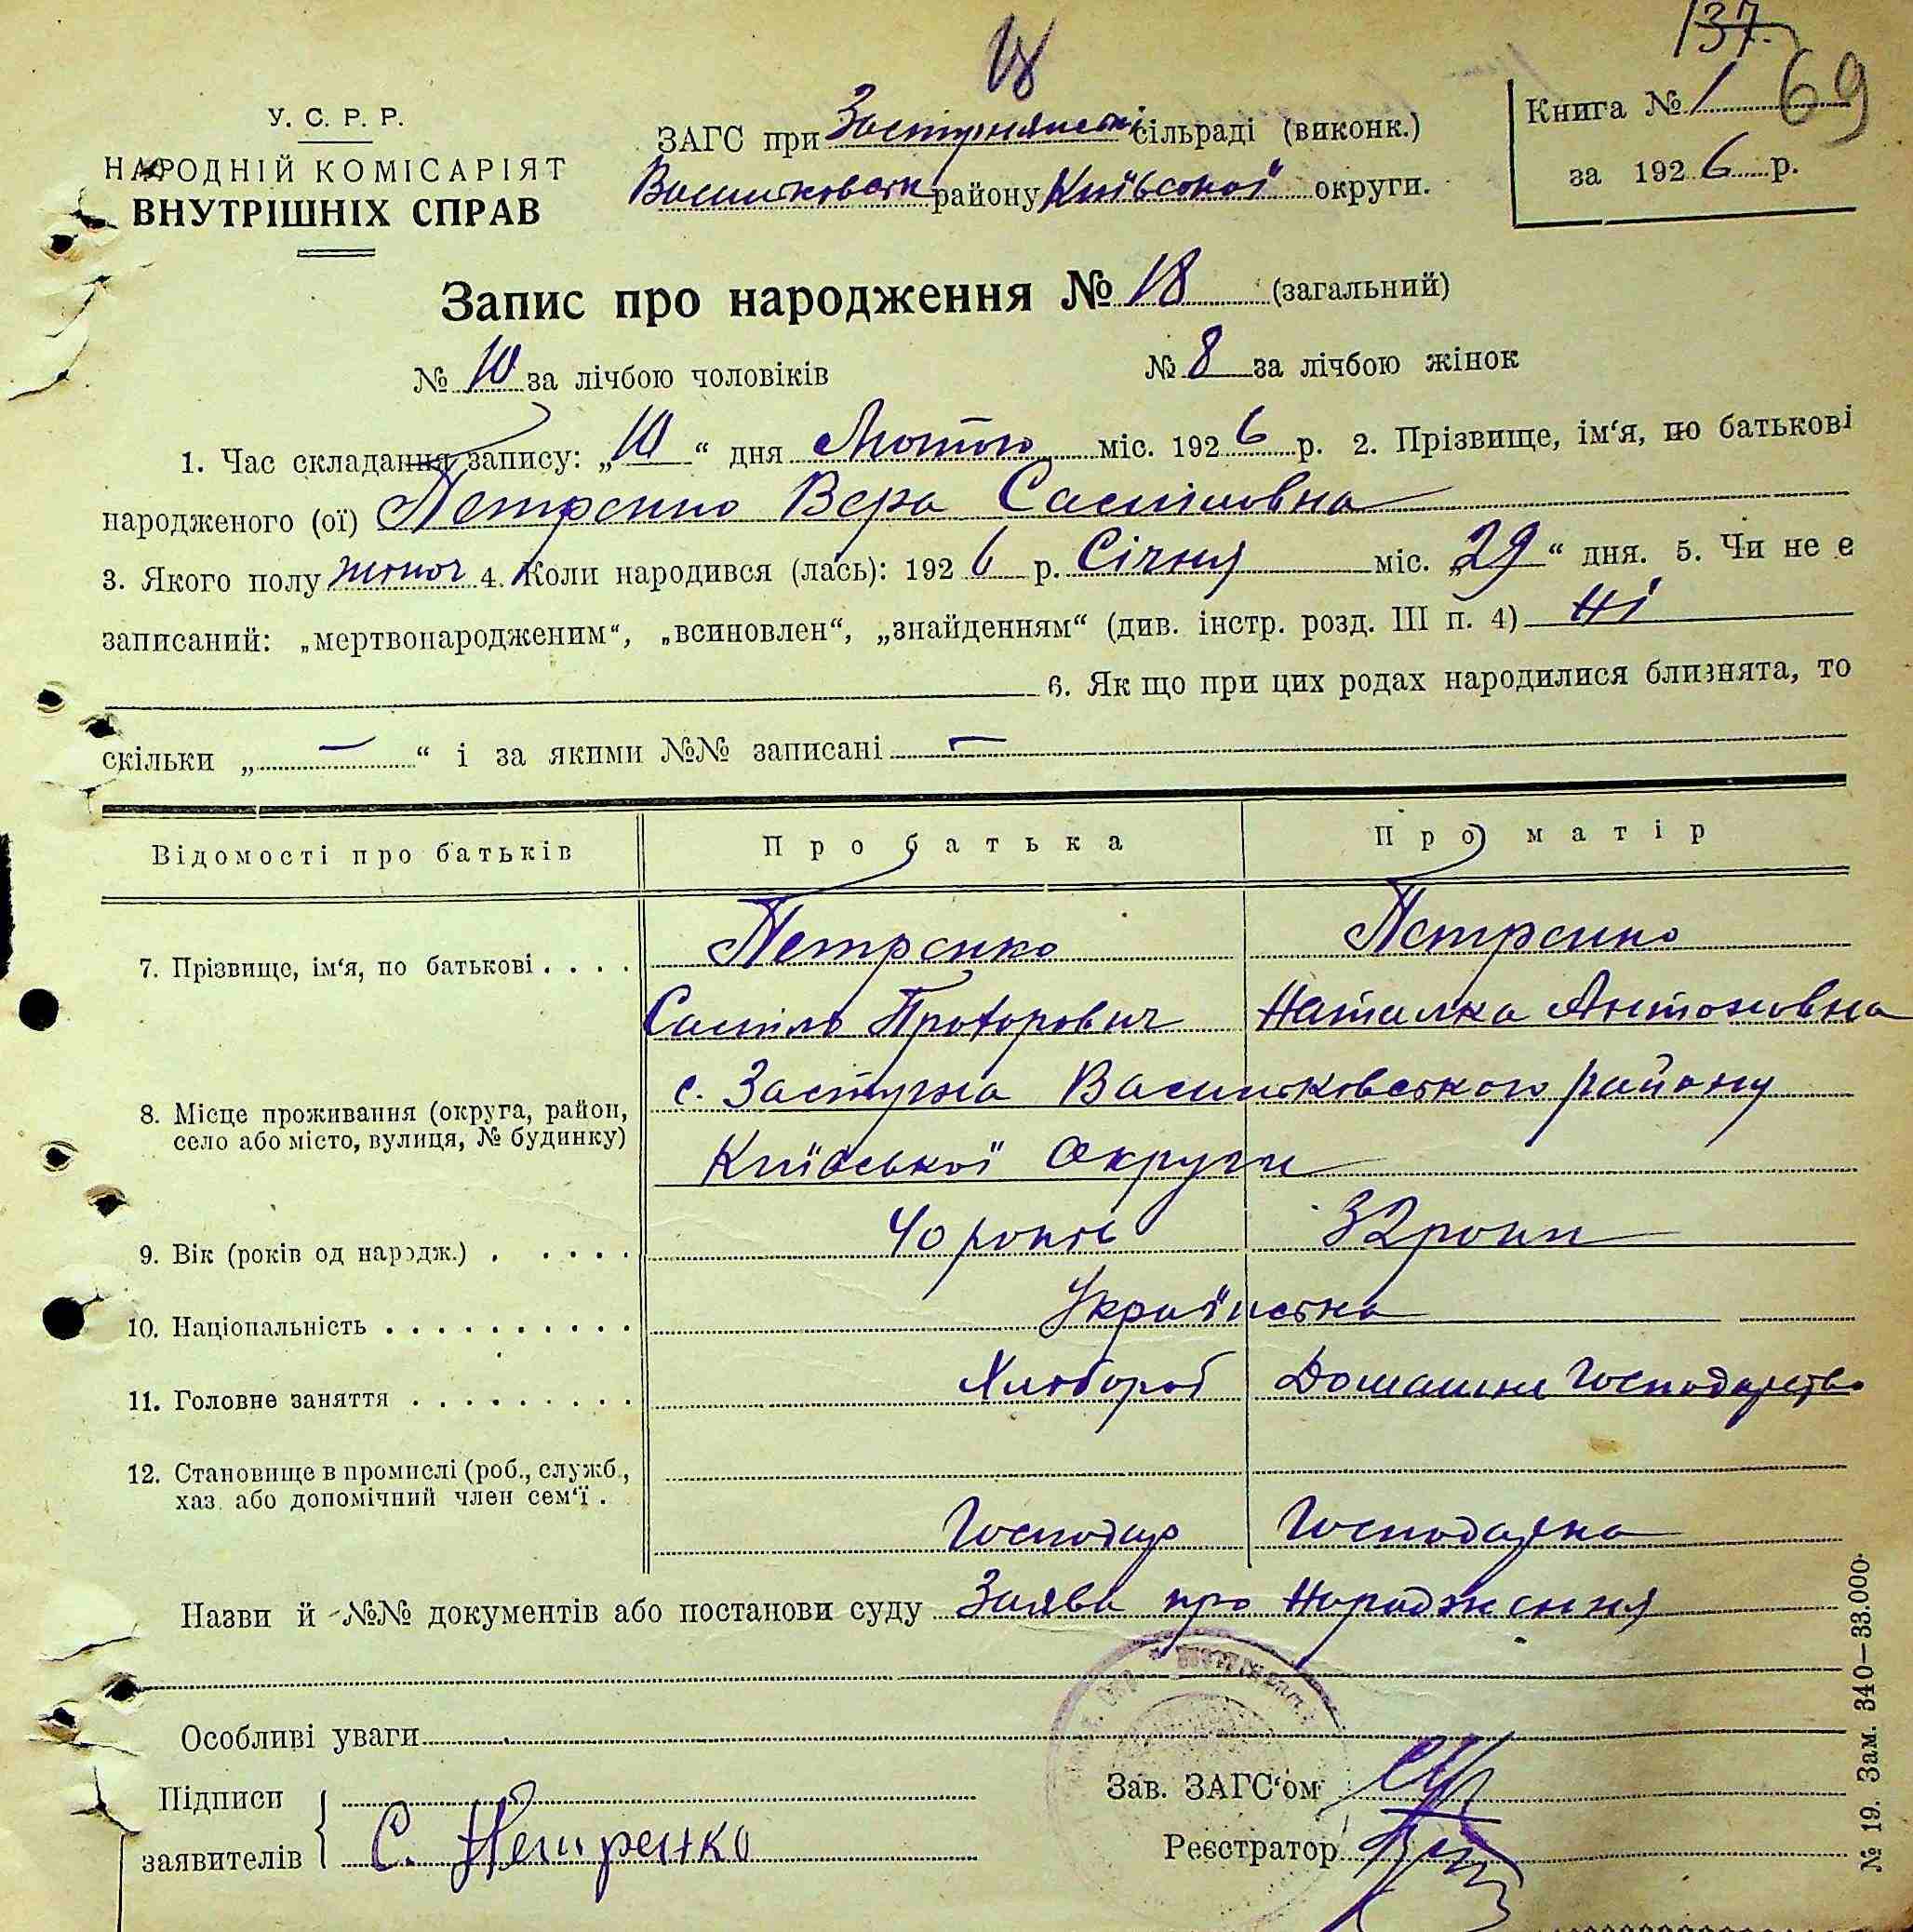 137.
18
69
У. С. Р. Р.
НАРОДНІЙ КОМІСАРІЯТ
ВНУТРІШНІХ СПРАВ
ЗАГС при Застугнянські сільраді (виконк.)
Васильковськ району Київської округи.
Книга № 1
за 1926 р.
Запис про народження № 18 (загальний)
№ 10 за лічбою чоловіків № 8 за лічбою жінок
1. Час складання запису: „10“ дня Лютого міс. 1926 р. 2. Прізвище, ім‘я, по батькові
народженого (ої) Петренко Вера Саміловна
3. Якого полу жіноч 4. Коли народився (лась): 1926 р. Січня міс. „29“ дня. 5. Чи не є
записаний: „мертвонародженим“, „всиновлен“, „знайденням“ (див. інстр. розд. III п. 4) Ні
6. Як що при цих родах народилися близнята, то
скільки „ — “ і за якими №№ записані —
Відомості про батьків Про батька Про матір
7. Прізвище, ім‘я, по батькові . . . . Петренко Петренко
Саміло Прохорович Наталка Антоновна
8. Місце проживання (округа, район, с. Застугна Васильковського району
село або місто, вулиця, № будинку)
Київської Округи
9. Вік (років од народж.) . . . . . 40 років 32 роки
10. Національність . . . . . . . . . . Українська
11. Головне заняття . . . . . . . . . Хлібороб Домашнє Господарство
12. Становище в промислі (роб., служб.,
хаз. або допомічний член сем‘ї .
Господар Господарка
Назви й №№ документів або постанови суду Заява про Народження
Особливі уваги
Підписи
заявителів С. Петренко
Зав. ЗАГС‘ом
Реєстратор
№ 19. Зам. 340—33.000.